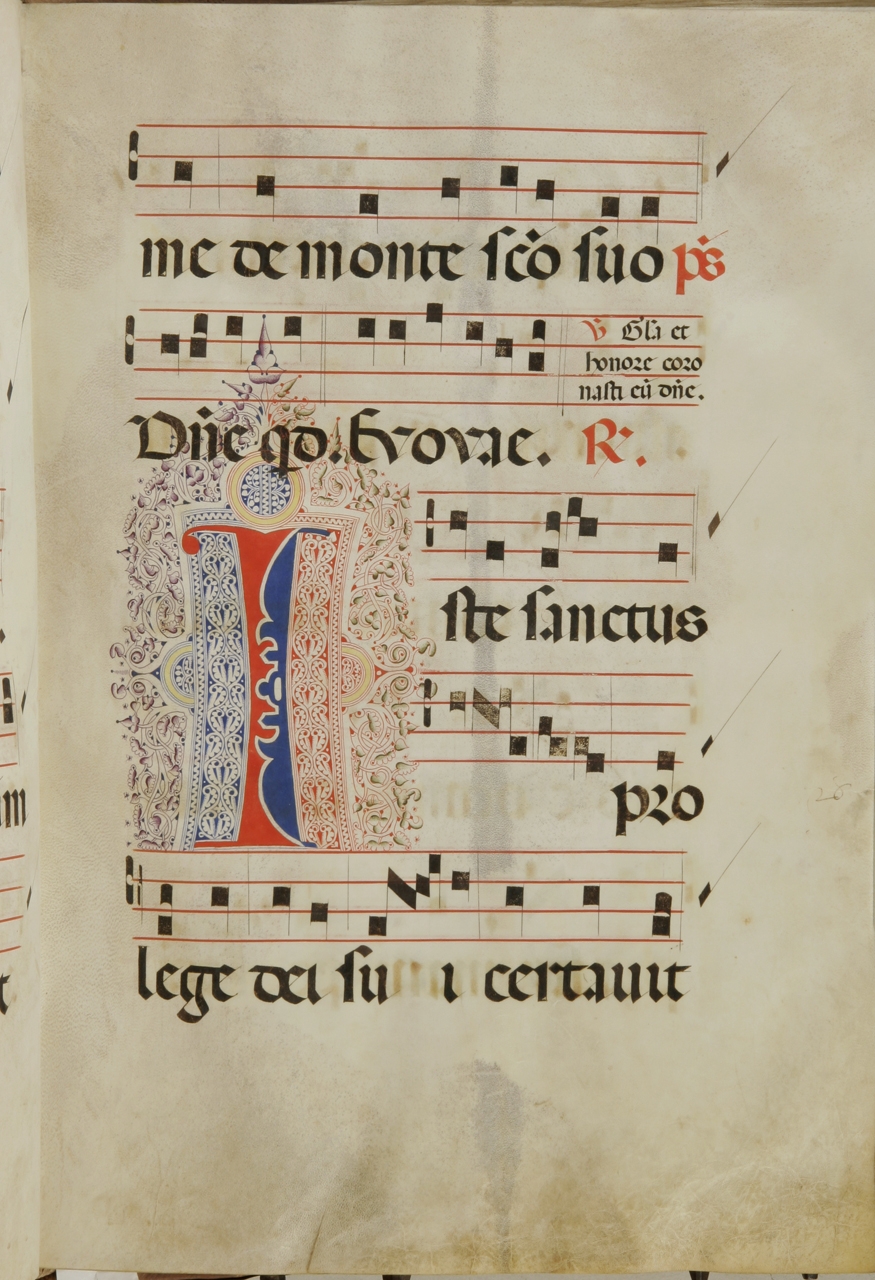 me de monte sc̄o suo ps̄
℣ Gl̄a et
honore coro
nasti eū dn̄e.
Dn̄e qd. Evovae. R̸.
Iste sanctus
pro
lege dei su i certauit
26